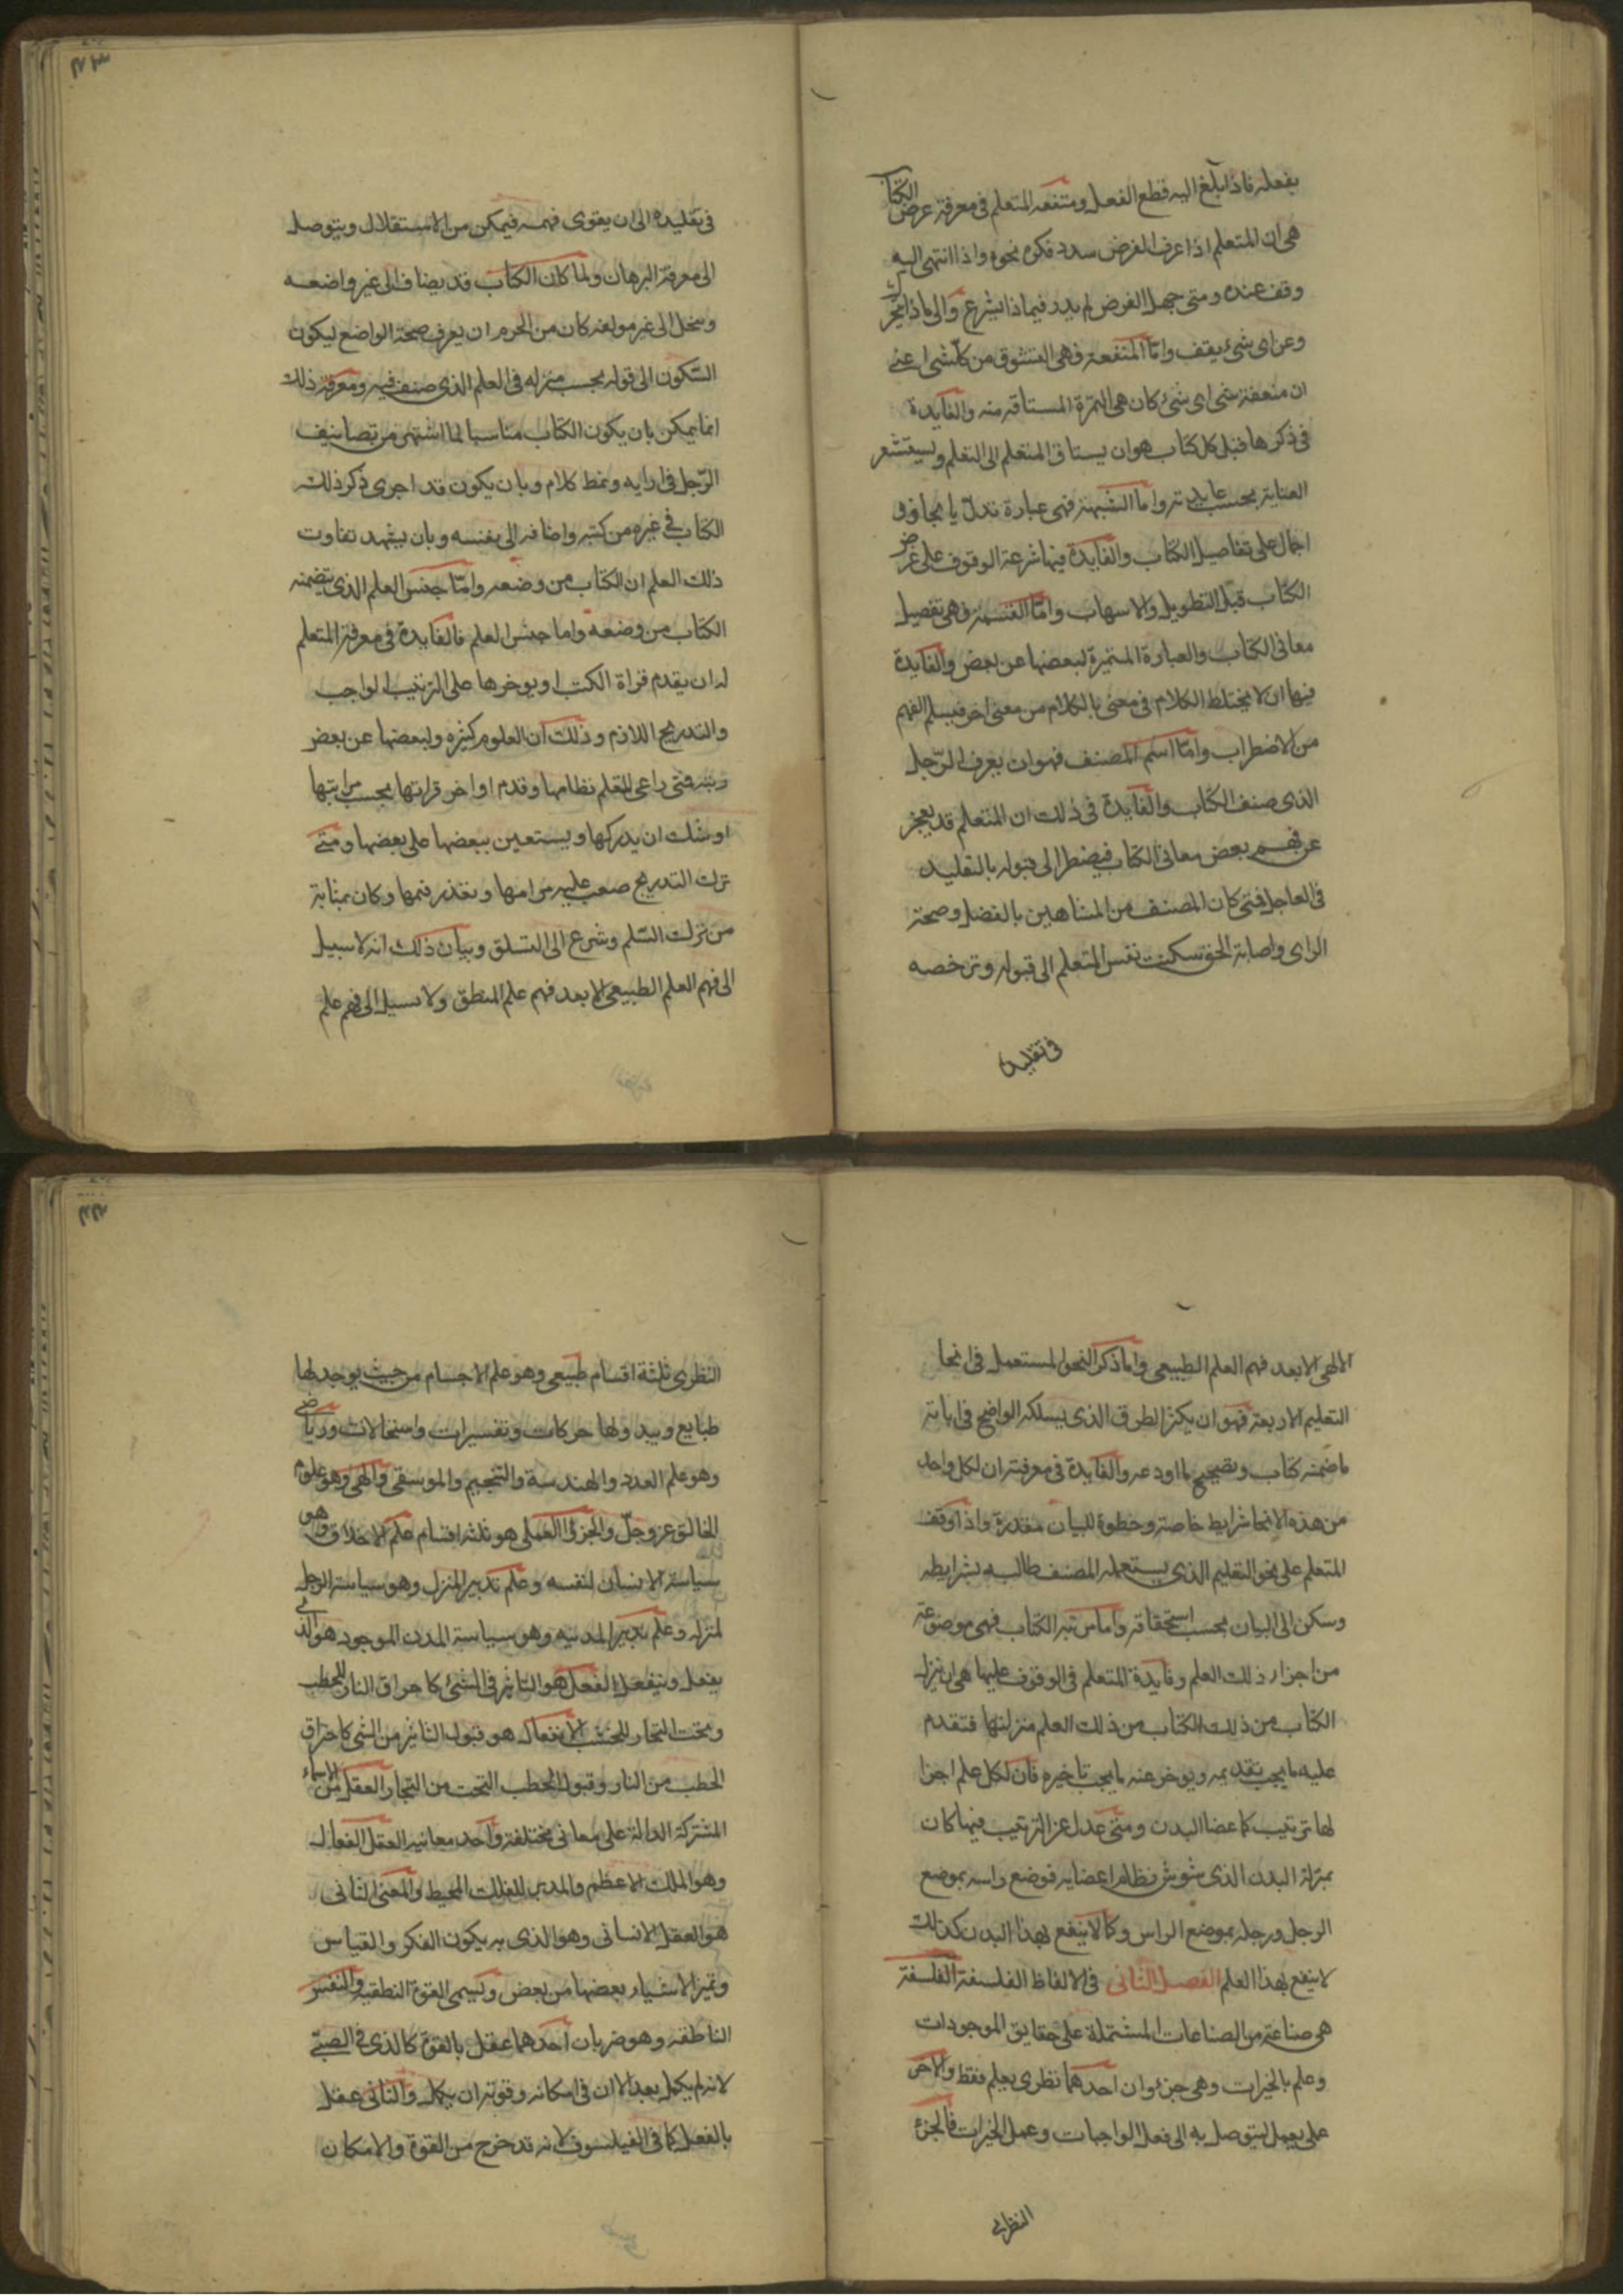 بفعله فاذا بلغ اليه قطع الفعل ومنفعه المتعلم في معرفة غرض الكتاب
هي ان المتعلم اذا عرف الغرض سدد فكره نحوه واذا انتهى اليه
وقف عنده ومتى جهل الغرض لم يدر فيماذا يشرع والى ماذا
وعن اى شئ يقف وامّا المنفعة فهى المتشوق من كلّ شى اعنى
ان منفعة شى اى شئ كان هى الثمرة المستاقه منه والفايدة
فى ذكرها قبل كل كتاب هو ان يستاق المتعلم الى التعلم ويستشعر
العناية بحسب عايدته واما السمة فهى عبارة تدلّ بايجاز و
اجمال على تفاصيل الكتاب والفايدة فيها شرعة الوقوف على غرض
الكتاب قبل التطويل والاسهاب وامّا القسمة فهى تفصيل
معانى الكتاب والعبارة المتميزة لبعضها عن بعض والفايدة
فيها ان لا يختلط الكلام فى معنى بالكلام من معنى اخر فيسلم الفهم
من الاضطراب وامّا اسم المصنف فهو ان يعرف الرّجل
الذى صنف الكتاب والفايدة فى ذلك ان المتعلم قد يعجز
عن فهم بعض معانى الكتاب فيضطر الى قبوله بالتقليد
فى العاجل فمتى كان المصنف من المشاهين بالفضل وصحة
الراى واصابة الحق سكنت نفس المتعلم الى قبوله وترخصه
فى تقليده
٤٣
فى تقليده الى ان يقوى فهمه فيمكن من الاستقلال ويتوصل
الى معرفة البرهان ولما كان الكتاب قد يضاف الى غير واضعه
وينحل الى غير مولفه كان من الحزم ان يعرف صحة الواضع ليكون
السّكون الى قوله بحسب منزله فى العلم الذى صنف فيه ومعرفة ذلك
انما يمكن بان يكون الكتاب مناسبا لما اشتهر من تصانيف
الرّجل فى ارايه ونمط كلام وبان يكون قد اجرى ذكر ذلك
الكتاب فى غيره من كتبه واضافه الى نفسه وبان يشهد تفاوت
ذلك العلم ان الكتاب من وضعه وامّا جنس العلم الذى تضمنه
الكتاب من وضعه واما جنس العلم فالفايدة فى معرفة المتعلم
له ان يقدم قراة الكتب او يوخرها على الترتيب الواجب
والتدريج اللازم وذلك ان العلوم كثيره ولبعضها عن بعض
رتبه فمتى راعى المتعلم نظامها وقدم اواخر قراتها بحسب مراتبها
اوشك ان يدركها ويستعين ببعضها على بعضها ومتى
ترك التدريج صعب عليه مرامها وتعذر فهمها وكان بمثابة
من ترك السّلم وشرع الى التسلق وبيان ذلك انه لا سبيل
الى فهم العلم الطبيعى الا بعد فهم علم المنطق ولا سبيل الى فهم علم
الالهى الا بعد فهم العلم الطبيعى واما ذكر النحو المستعمل فى انحا
التعليم الاربعة فهو ان يكثر الطرق الذى يسلكه الواضع فى ابانة
ما ضمنه كتاب وتصحيح ما اودعه والفايدة فى معرفته ان لكل واحد
من هذه الانحا شرايط خاصة وخطوة للبيان مقدرة واذا وقف
المتعلم على نحو التعليم الذى يستعمله المصنف طالبه بشرايطه
وسكن الى البيان بحسب استحقاقه واما مرتبه الكتاب فهى موضوعة
من اجزاء ذلك العلم وفايدة المتعلم فى الوقوف عليها هى ان ينزل
الكتاب من ذلك الكتاب من ذلك العلم منزلتها فتقدم
عليه ما يجب تقديمه ويوخر عنه ما يجب تاخيره فان لكل علم اجزا
لها ترتيب كاعضا البدن ومتى عدل عن الترتيب فيها كان
بمنزلة البدن الذى شوش نظام اعضايه فوضع راسه بموضع
الرجل ورجله بموضع الراس وكما لا ينتفع بهذا البدن كذلك
لا ينتفع بهذا العلم الفصل الثانى فى الالفاظ الفلسفة الفلسفة
هى صناعة من الصناعات المشتملة على حقايق الموجودات
وعلم بالخيرات وهى جزءان احدهما نظرى يعلم فقط والاخر
على يعمل ليتوصل به الى فعل الواجبات وعمل الخيرات فالجزء
النظرى
٤٤
النظرى ثلثة اقسام طبيعى وهو علم الاجسام من حيث يوجد لها
طبايع ويبدو لها حركات وتفسيرات واستحالات ورياضى
وهو علم العدد والهندسة والتنجيم والموسقى والهى وهو علوم
الخالق عز وجلّ والجزئ العملى هو ثلثه اقسام علم الاخلاق وهو
سياسة الانسان لنفسه وعلم تدبير المنزل وهو سياسة الرجل
لمنزله وعلم تدبير المدنيه وهو سياسة المدن الموجود هو الذى
يفعل وينفعل الفعل هو التاثير فى الشئ كاحراق النار للحطب
ونحت النجار للخشب الانفعال هو قبول التاثير من الشى كاحراق
الحطب من النار وقبول الحطب النحت من النجار العقل من الاسماء
المشتركة الدالة على معانى مختلفة واحد معانيه العقل الفعال
وهو الملك الاعظم والمدبر للفلك المحيط والمعنى الثانى
هو العقل الانسانى وهو الذى به يكون الفكر والقياس
وتميز الاشياء بعضها من بعض وتسمى القوة النطقيه والنفس
الناطقه وهو ضربان احدهما عقل بالقوة كالذى فى الصبّى
لانه لم يكمل بعد الا ان فى امكانه وقوته ان يكمل والثانى عقل
بالفعل كما فى الفيلسوف لانه قد خرج من القوة والامكان